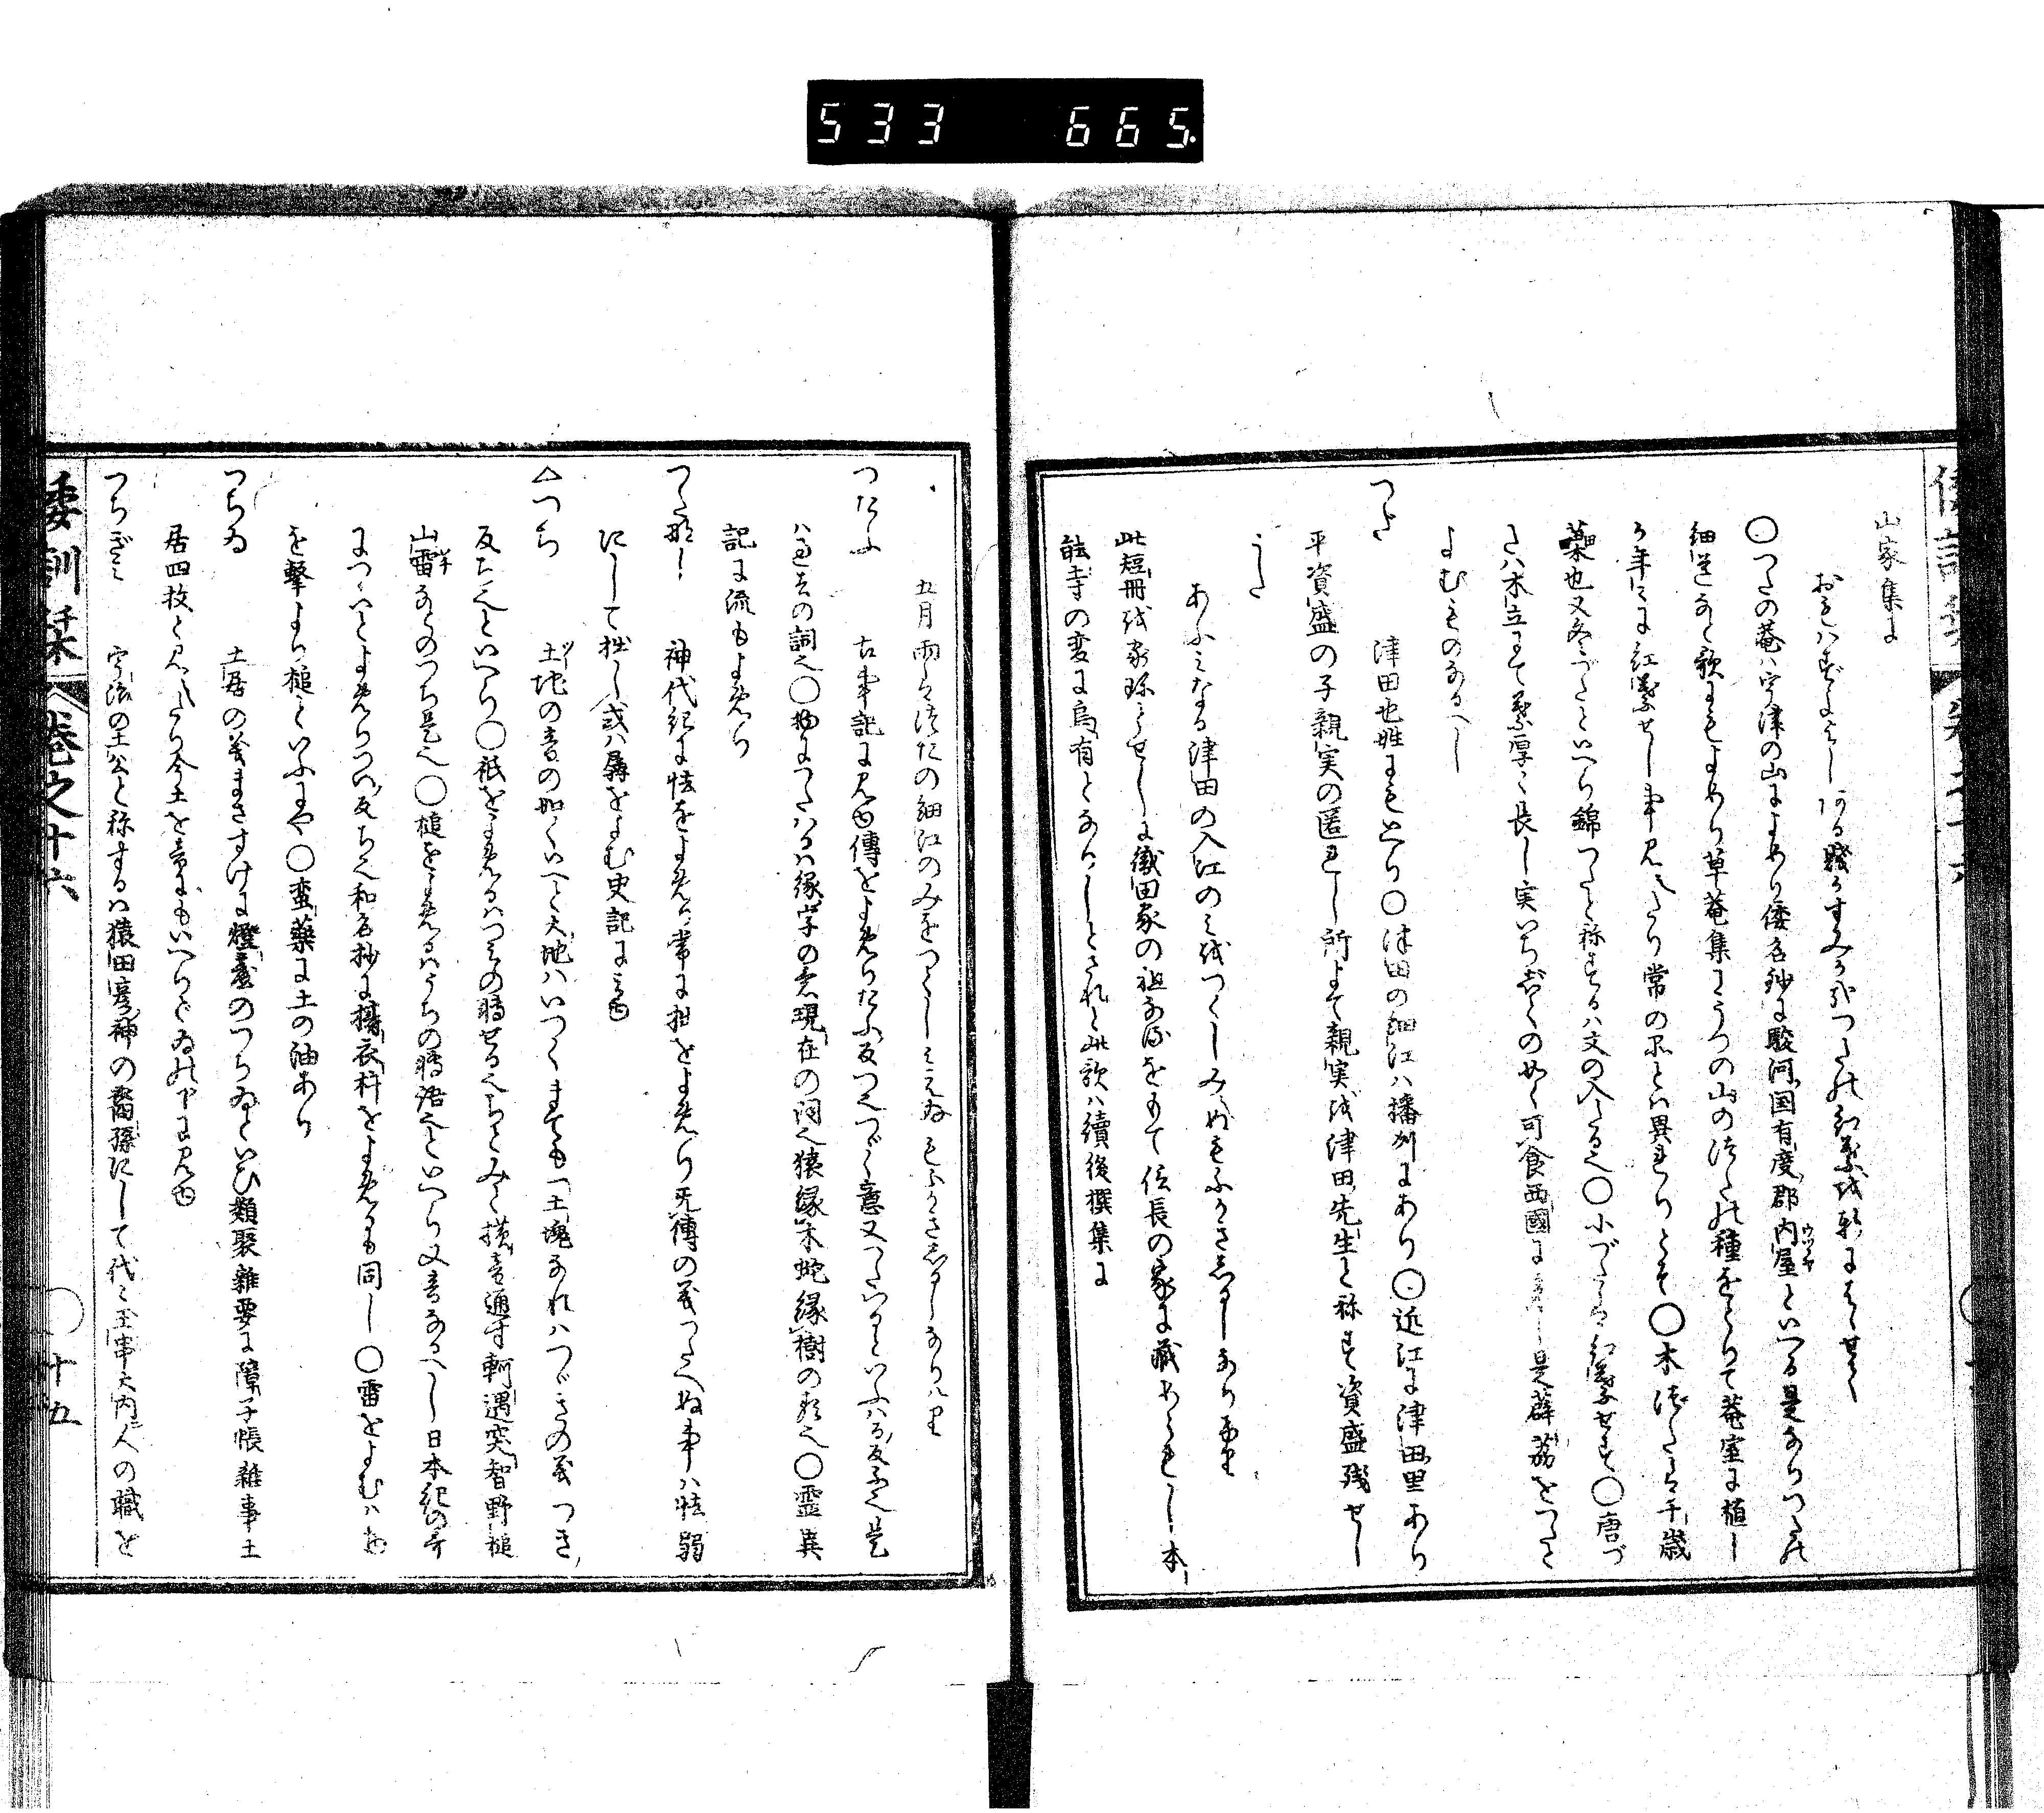 533 665.
山家集に
おもはずよよしある賤がすみかかなつたの紅葉を軒にははせて
〇つたの菴ハ宇津の山によめり倭名鈔に駿河国有度郡内屋といへる是なりつたの
ウツノヤ
細道なと歌にもよめり草菴集にうつの山のつたの種をとりて菴室に植し
か年々に紅葉せし事見えたり常の品とハ異なりとそ〇木づたハ千歳
蘽也又冬づたといへり錦つたと称するハ文の入たる也〇小づたハ紅葉せす〇唐づ
たハ木立にて葉厚く長し実いちぢくの如く可食西國に多し是薜茘をつたと
よむものなるへし
つだ 津田也姓にもいへり〇津田の細江ハ播州にあり〇近江に津田里あり
平資盛の子親実の匿れし所よて親実を津田先生と称す資盛残せし
うた
あふみなる津田の入江のみをつくしみえぬもふかきしるしなりけり
此短冊を家珍とせしに織田家の祖なるをもて信長の家に蔵められし本
能寺の変に烏有となりしとされと此歌ハ續後撰集に
五月雨はつたの細江のみをつくしみえぬもふかきしるしなりけり
つたふ 古事記に見ゆ傳をよめりたふ反つ也つづく意又つたはるといふハる反ふ也是
ハ過去の詞也〇物につたハるハ縁字の意現在の詞也猿縁木蛇縁樹の類也〇霊異
記に流もよめり
つたなし 神代紀に怯をよめり常に拙をよめり无傳の義つたへぬ事ハ怯弱
にして拙し或ハ孱をよむ史記にみゆ
△つち 土地の音の如くいへと天地ハいつくまても一土塊なれハつづきの義つき
反ち也といへり〇祇をよめるハつみの轉せる也ちとみと横音通す軻遇突智野槌
山雷なとのつち是也〇槌をよめるハうちの轉語也といへり又音なるへし日本紀の哥
につゝいとよめりつい反ち也和名抄に擣衣杵をよめるも同し〇雷をよむハ物
を撃より槌といふにや〇蛮藥に土の油あり
つちゐ 土居の義まさすけに燈臺のつちゐといひ類聚雜要に障子帳雜事土
居四枚と見えたり今土を音にもいへりくゐの下に見ゆ
つちぎみ 宇治の土公と称するハ猿田彦神の裔孫にして代々玉串大内人の職を
倭訓栞 卷之十六 〇 十五